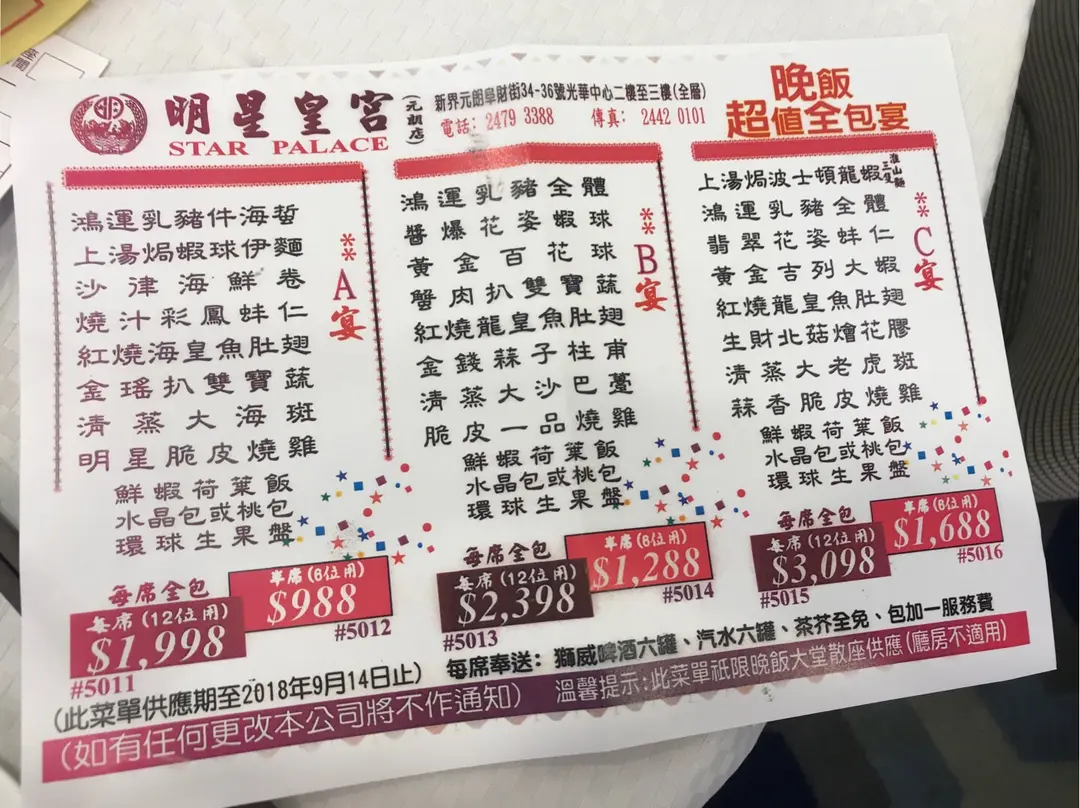 座間
明星皇宮
STAR PALACE
(元朗店)
新界元朗阜財街34-36號光華中心二樓至三樓(全層)
電話: 2479 3388 傳真: 2442 0101
晚飯
超值全包宴
**A宴
鴻運乳豬件海蜇
上湯焗蝦球伊麵
沙律海鮮卷
燒汁彩鳳蚌仁
紅燒海皇魚肚翅
金瑤扒雙寶蔬
清蒸大海斑
明星脆皮燒雞
鮮蝦荷葉飯
水晶包或桃包
環球生果盤
每席全包
每席(12位用)
$1,998
#5011
半席(6位用)
$988
#5012
**B宴
鴻運乳豬全體
醬爆花姿蝦球
黃金百花球
蟹肉扒雙寶蔬
紅燒龍皇魚肚翅
金錢蒜子柱甫
清蒸大沙巴躉
脆皮一品燒雞
鮮蝦荷葉飯
水晶包或桃包
環球生果盤
每席全包
每席(12位用)
$2,398
#5013
半席(6位用)
$1,288
#5014
**C宴
上湯焗波士頓龍蝦
淮山麵
三隻
鴻運乳豬全體
翡翠花姿蚌仁
黃金吉列大蝦
紅燒龍皇魚肚翅
生財北菇燴花膠
清蒸大老虎斑
蒜香脆皮燒雞
鮮蝦荷葉飯
水晶包或桃包
環球生果盤
每席全包
每席(12位用)
$3,098
#5015
半席(6位用)
$1,688
#5016
(此菜單供應期至2018年9月14日止)
每席奉送: 獅威啤酒六罐、汽水六罐、茶芥全免、包加一服務費
(如有任何更改本公司將不作通知)
溫馨提示:此菜單祇限晚飯大堂散座供應(廳房不適用)